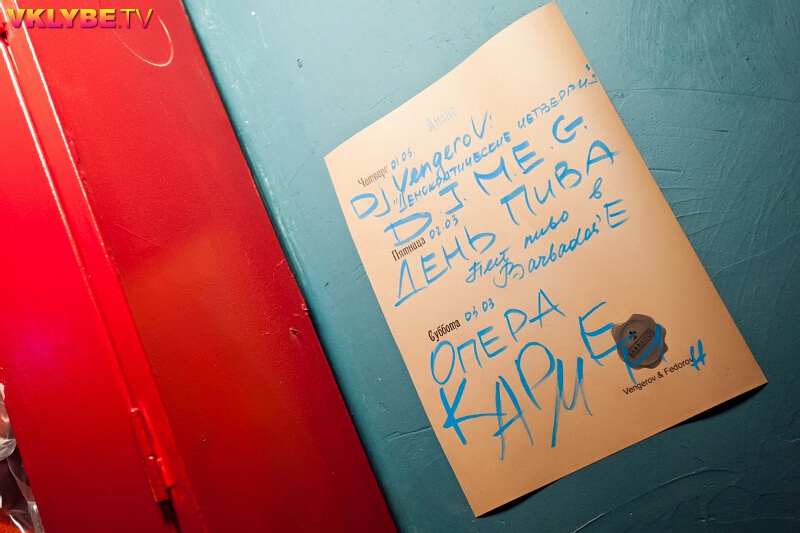 VKLYBE.TV
Анонс
Четверг 01.03.
DJ Vengerov!
"Демократические четверги"
D.J. M.E.G.
Пятница 02.03
ДЕНЬ ПИВА
пиво в
Barbados'E
Суббота 03.03
ОПЕРА
КАРМЕН
Vengerov & Fedorov